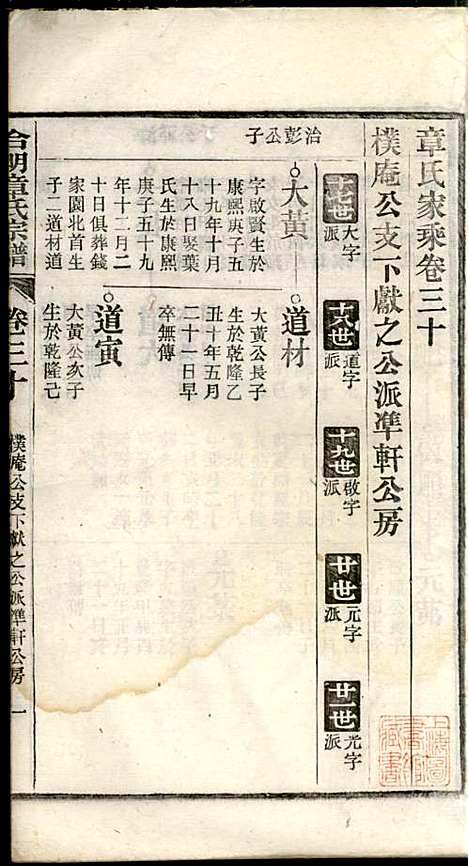 章氏家乘卷三十
樸庵公支下獻之公派準軒公房
十七世 大字派
十八世 道字派
十九世 啟字派
廿世 元字派
廿一世 光字派
治彭公子
大黃
字啟賢生於
康熙庚子五
十九年十月
十八日娶葉
氏生於康熙
庚子五十九
年十二月二
十日俱葬錢
家園北首生
子二道材道
道材
大黃公長子
生於乾隆乙
丑十年五月
二十一日早
卒無傳
道寅
大黃公次子
生於乾隆己
章氏宗譜
卷三十
樸庵公支下獻之公派準軒公房
一
上海圖書館藏書